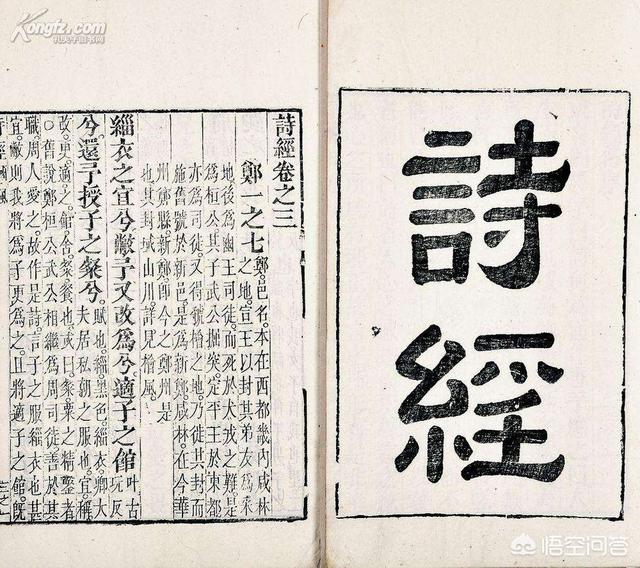 詩經
詩經卷之三
鄭一之七 鄭。邑名。本在西都畿內咸林
之地。宣王以封其弟友爲采
地後爲幽王司徒。而死於犬戎之難。是
爲桓公。其子武公掘突。定平王於東都
亦爲司徒。又得虢檜之地。乃徙其封而
施舊號於新邑。是爲新鄭。咸林在今華
州鄭縣。新鄭卽今之鄭州是
也。其封域山川。詳見檜風。
緇衣之宜兮敝予又改爲兮適子之館 叶古
玩反
兮。還予授子之粲兮。 賦也。緇。黑色。緇衣。卿大
夫居私朝之服也。宜。稱
改。更。適。之。館。舍。粲。餐也。或曰。粲。粟之精鑿者
○舊說鄭桓公武公。相繼爲周司徒。善於其
職。周人愛之。故作是詩。言子之服緇衣也甚
宜。敝則我將爲子更爲之。且將適子之館。旣
Kongfz.com
孔夫子旧书网
悟空问答